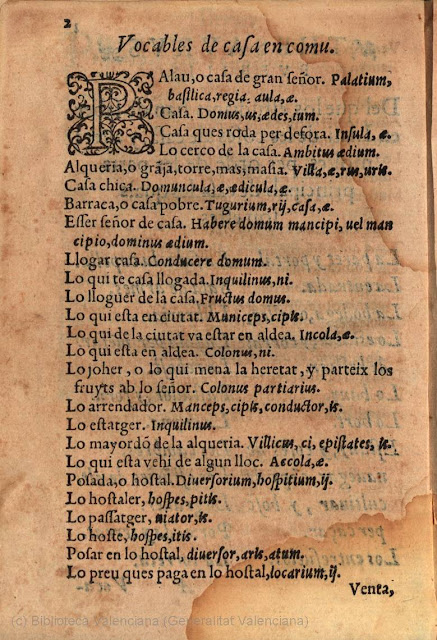 2
Vocables de casa en comu.
PAlau, o casa de gran señor. Palatium,
basilica, regia, aula, æ.
Casa. Domus, us, ædes, ium.
Casa ques roda per defora. Insula, æ.
Lo cerco de la casa. Ambitus ædium.
Alqueria, o grāja, torre, mas, masia. Villa, æ, rus, uris.
Casa chica. Domuncula, æ, ædicula, æ.
Barraca, o casa pobre. Tugurium, rij, casa, æ.
Esser señor de casa. Habere domum mancipi, uel man
cipio, dominus ædium.
Llogar casa. Conducere domum.
Lo qui te casa llogada. Inquilinus, ni.
Lo lloguer de la casa. Fructus domus.
Lo qui esta en ciutat. Municeps, cipis.
Lo qui de la ciutat va estar en aldea. Incola, æ.
Lo qui esta en aldea. Colonus, ni.
Lo joher, o lo qui mena la heretat, y parteix los
fruyts ab lo señor. Colonus partiarius.
Lo arrendador. Manceps, cipis, conductor, is.
Lo estatger. Inquilinus.
Lo mayordō de la alqueria. Villicus, ci, epistates, is.
Lo qui esta vehi de algun lloc. Accola, æ.
Posada, o hostal. Diuersorium, hospitium, ij.
Lo hostaler, hospes, pitis.
Lo passatger, uiator, is.
Lo hoste, hospes, itis.
Posar en lo hostal, diuersor, aris, atum.
Lo preu ques paga en lo hostal, locarium, ij.
Venta,
(c) Biblioteca Valenciana (Generalitat Valenciana)